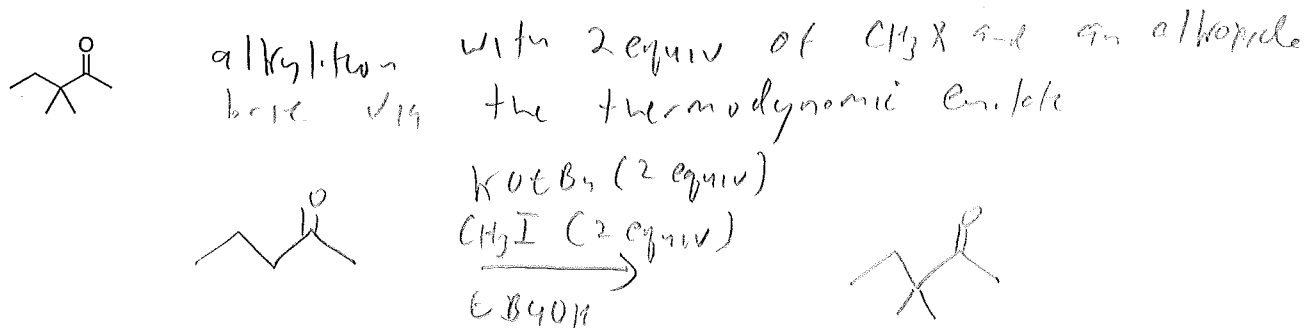 O
alkylation with 2 equiv of CH3X and an alkoxide
base via the thermodynamic enolate
O
KOtBu (2 equiv)
CH3I (2 equiv)
O
tBuOH